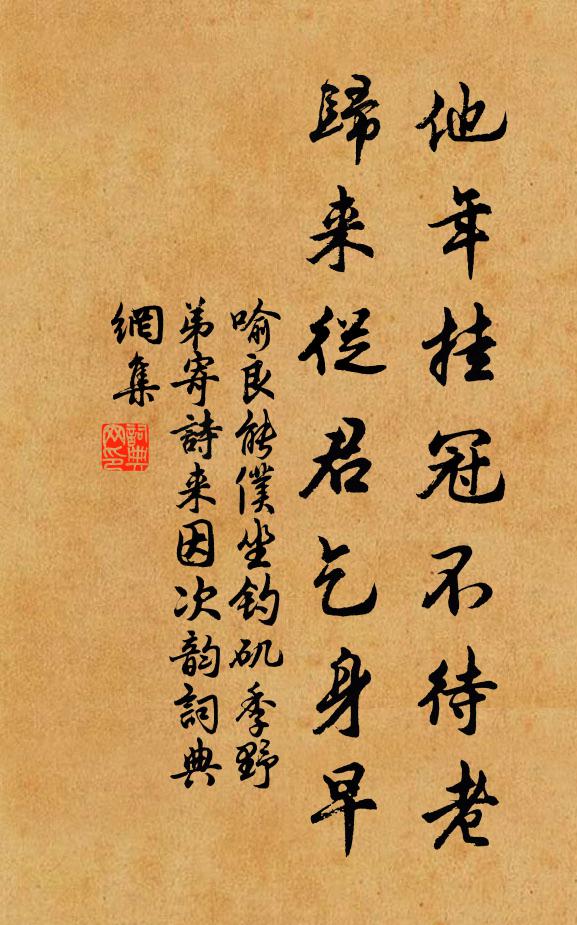 他年挂冠不待老
歸来從君乞身早
喻良能僕坐釣矶季野
弟寄詩来因次韵詞典
網集
詞典
网印